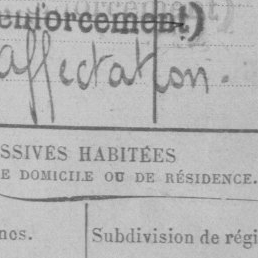 enforcement)
affectation.
SSIVES HABITÉES
E DOMICILE OU DE RÉSIDENCE.
nes.
Subdivision de régi